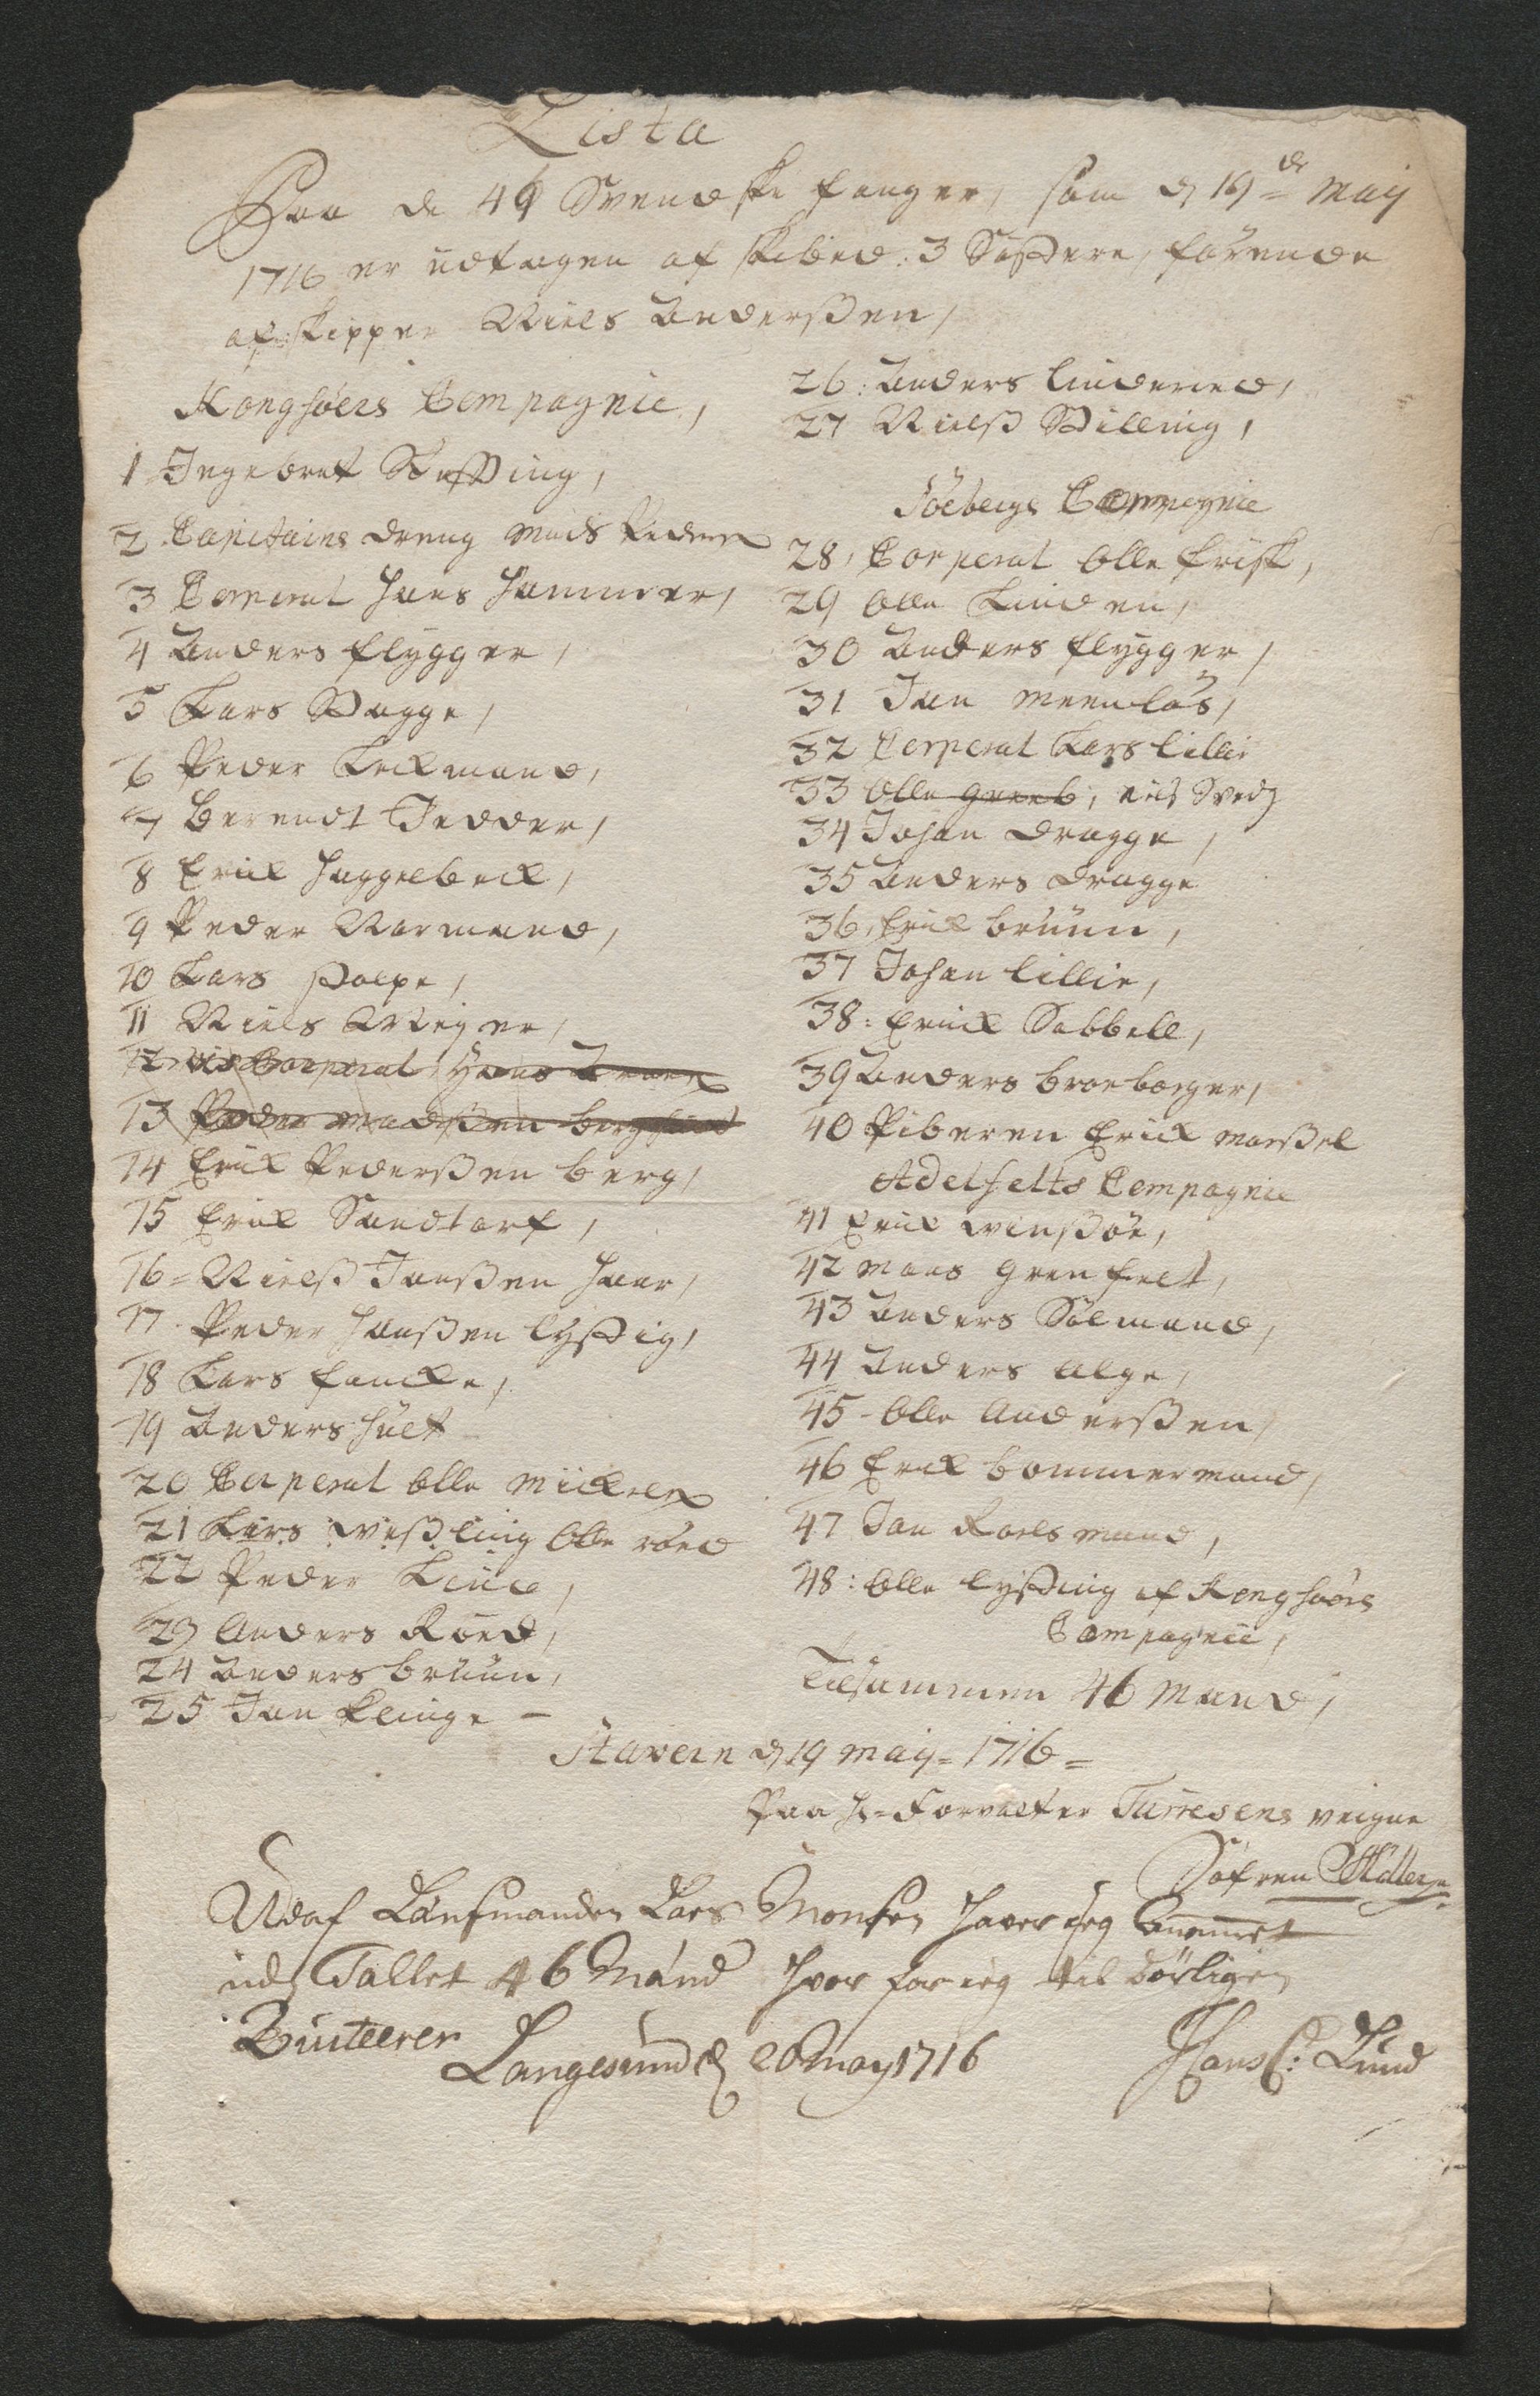 Lista
Paa de 46 Svendske fanger, som d 19de Maij
1716 er udtagen af skibed: 3 Søstere, førende
af Skipper Niels Anderßen,
Kongsøers Compagnie,
1 Ingebret Kysting,
2 Capitains dreng Mads Peders
3 Corperal Hans Hammer,
4 Anders flygger,
5 Lars Stagge,
6 Peder Leckmand,
7 Berendt Tedder,
8 Erick Haggelbeck,
9 Peder Normand,
10 Lars Stolpe,
11 Niels Krieger,
12 vis Corperal Hans
13 Peder Madsßen
14 Erick Pederßen berg,
15 Erick Sandtorf,
16 = Nielß Janßen Haar,
17 Peder Hanßen lysting,
18 Lars fancke,
19 Anders Hult
20 Corperal Olle Mickels
21 Lars Weßling Olle röed
22 Peder Lind,
23 Anders Röed,
24 Anders bruun,
25 Jan Klinge –
26: Anders linderued,
27 Nielß Stilling,
Söebergs Compagnie
28, Corperal Olle frisk,
29 Olle Linden,
30 Anders flygger,
31 Jan Meenlös,
32 Corperal Lars lillie
33 Olle Greeb, Nils Svedj
34 Johan Dragge,
35 Anders Dragge
36, Erick bruun,
37 Johan lillie,
38: Erick Sabbell,
39 Anders broeborger,
40 Piberen Erick Morßel
Adelfelts Compagnie
41 Erick Winßöe,
42 Mons Grenfelt,
43 Anders Sölmand,
44 Anders Alge,
45 – Olle Anderßen,
46 Erick bommermand,
47 Jan Roelsmand,
48: Olle lysting af Kongsöers
Compagnie,
Tilsammen 46 Mand,
Stavern d 19 Maij = 1716 =
Paa Hr = Forvalter Turresens veigne
Söfren Möller
Udaf Lensmanden Lars Monsen haver jeg Annamet
ud Tallet 46 Mand hvor for jeg til börligen
Quiteerer
Langesund d 20 May 1716
Hans C: Lund